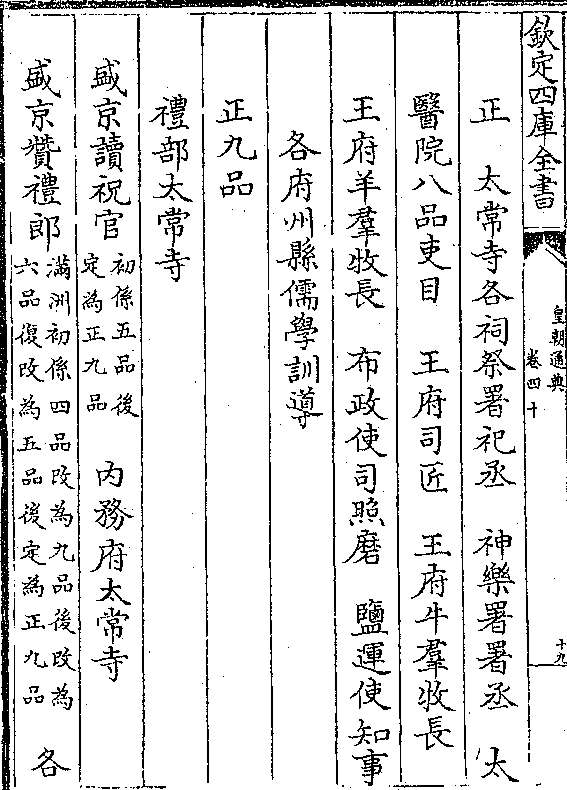 欽定四庫全書
皇朝通典
卷四十
十九
正　太常寺各祠祭署祀丞　神樂署署丞　太
醫院八品吏目　王府司匠　王府牛羣牧長
王府羊羣牧長　布政使司照磨　鹽運使知事
各府州縣儒學訓導
正九品
禮部太常寺
盛京讀祝官
初係五品後
定為正九品
內務府太常寺
盛京贊禮郎
滿洲初係四品改為九品後改為
六品復改為五品後定為正九品
各